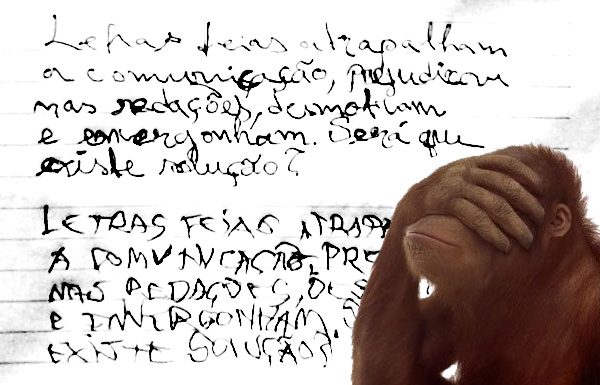 Letras feias atrapalham
a comunicação, prejudicam
nas redações, desmotivam
e envergonham. Será que
existe solução?
LETRAS FEIAS ATRAPA
A COMUNICAÇÃO, PRE
NAS REDAÇÕES, DES
E ENVERGONHAM. S
EXISTE SOLUÇÃO?